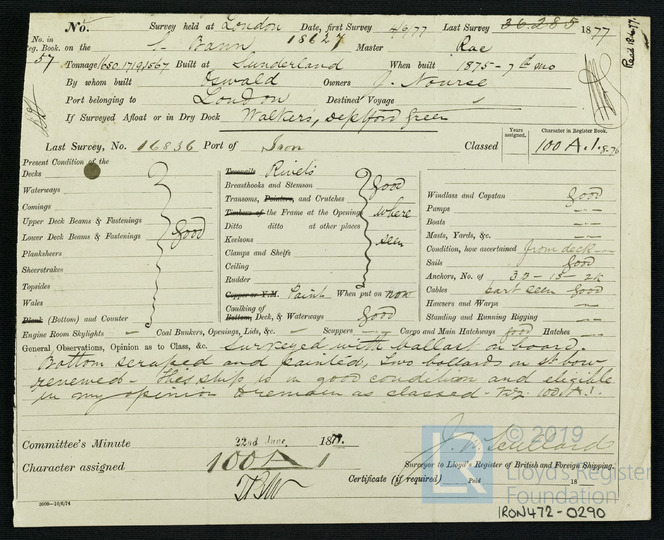 No. Survey held at London Date, first Survey Last Survey 36.285 1877
No. in Reg. Book. on the S. Braun 18627 Master Rae
57 Tonnage 1680.1719.1567 Built at Sunderland When built 1875-7th mo
By whom built Oswald Owners J. Nourse
Port belonging to London Destined Voyage
If Surveyed Afloat or in Dry Dock Walkers, Deptford Green
Last Survey, No. 16836 Port of Iron Classed 100 A.1. 8.76
Years assigned. Character in Register Book.
Present Condition of the
Decks
Waterways
Comings
Upper Deck Beams & Fastenings
Lower Deck Beams & Fastenings Good
Planksheers
Sheerstrakes
Topsides
Wales
Plank (Bottom) and Counter
Treenails Rivets
Breasthooks and Stemson Good
Transoms, Pointers, and Crutches
Timbers of the Frame at the Opening where
Ditto ditto at other places
Keelsons seen
Clamps and Shelfs
Ceiling
Rudder
Copper or Y.M. Paint When put on now
Caulking of Bottom, Deck, & Waterways Good
Windlass and Capstan Good
Pumps
Boats
Masts, Yards, &c.
Condition, how ascertained from deck
Sails Good
Anchors, No. of 3B-1S-2K
Cables part seen good
Hawsers and Warps
Standing and Running Rigging
Engine Room Skylights - Coal Bunkers, Openings, Lids, &c. - Scuppers - Cargo and Main Hatchways good Hatches
General Observations, Opinion as to Class, &c. Surveyed with ballast on board.
Bottom scraped and painted, two bollards on St bow
renewed - This ship is in good condition and eligible
in my opinion to remain as classed - viz: 100 A.1.
J. W. Scullard
Surveyor to Lloyd's Register of British and Foreign Shipping.
Committee's Minute 22nd June, 1877.
Character assigned 100 A 1
Certificate (if required) Paid 18
3000-10/6/74
© 2019
Lloyd's Register
Foundation
IRON472-0290